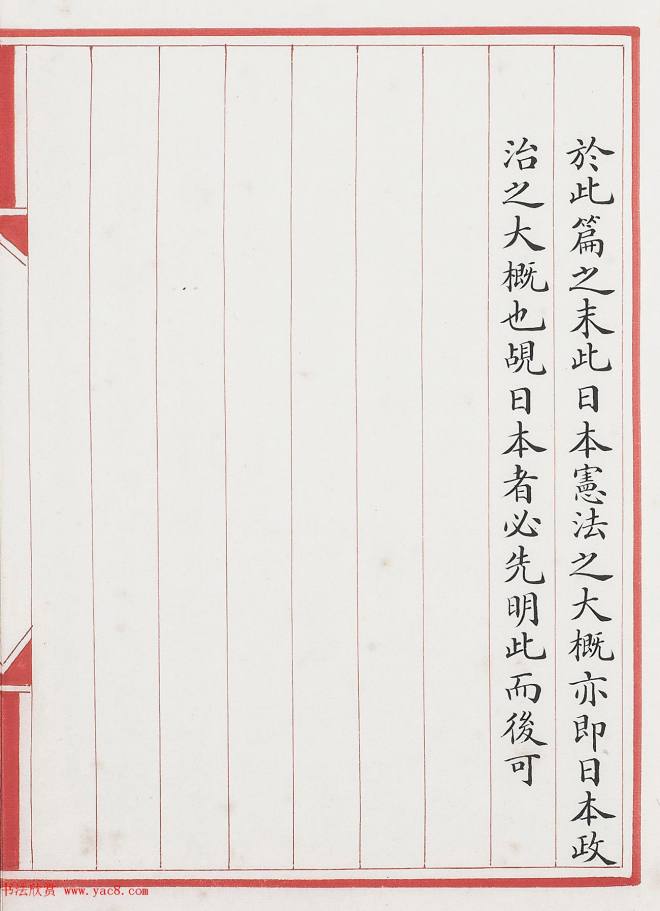 於此篇之末此日本憲法之大概亦即日本政
治之大概也覘日本者必先明此而後可
书法欣赏 www.yac8.com